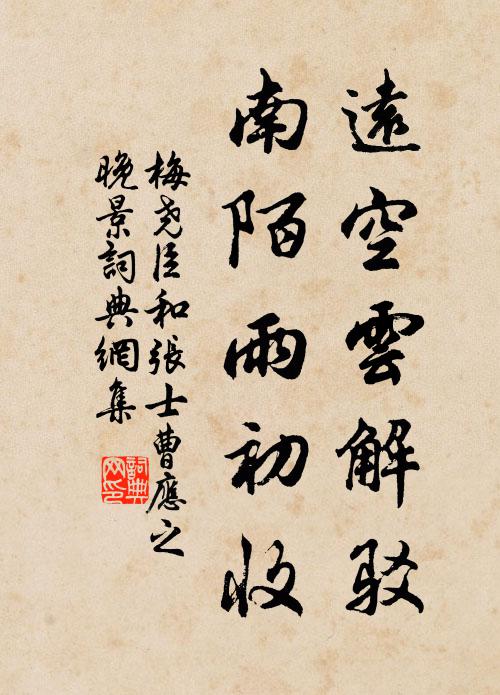 遠空雲解駁
南陌雨初收
梅尧臣和張士曹應之
晚景詞典網集
詞典网印